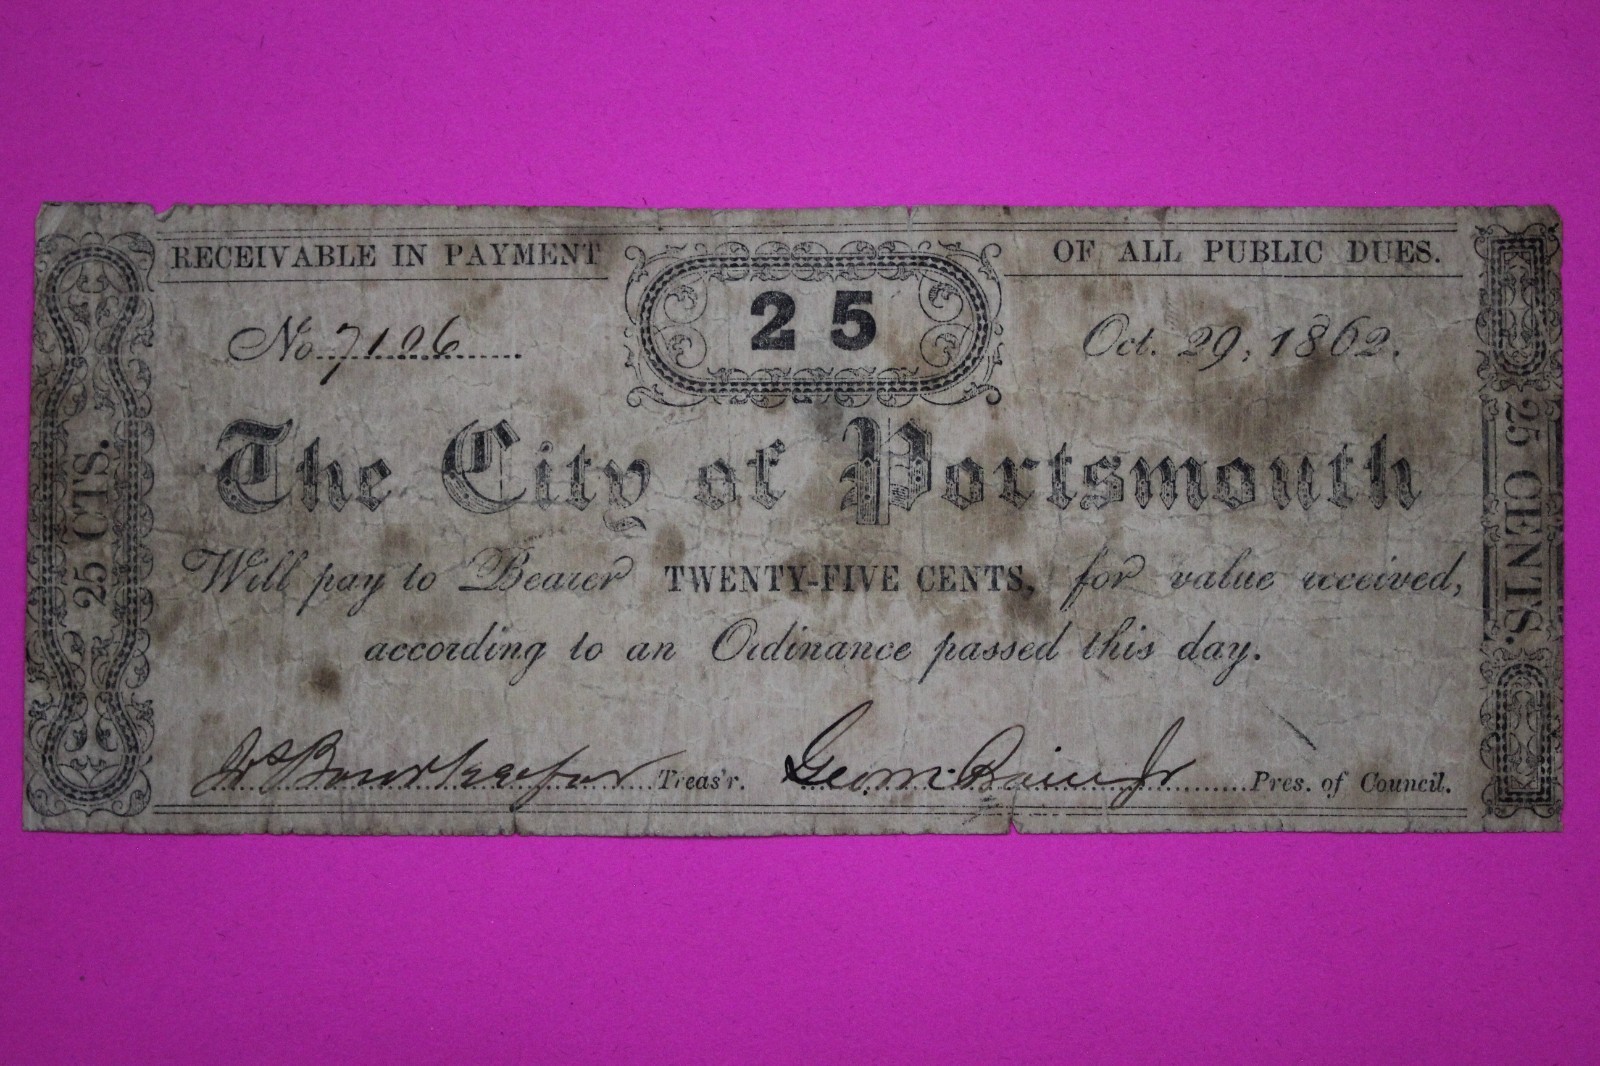 RECEIVABLE IN PAYMENT OF ALL PUBLIC DUES.
25
No. 7106
Oct. 29, 1862.
The City of Portsmouth
Will pay to Bearer TWENTY-FIVE CENTS, for value received,
according to an Ordinance passed this day.
Treas'r.
Pres. of Council.
25 CTS.
25 CENTS.